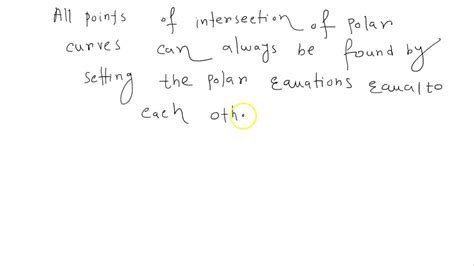 All points of intersection of polar
curves can always be found by
setting the polar Equations Equal to
each oth.